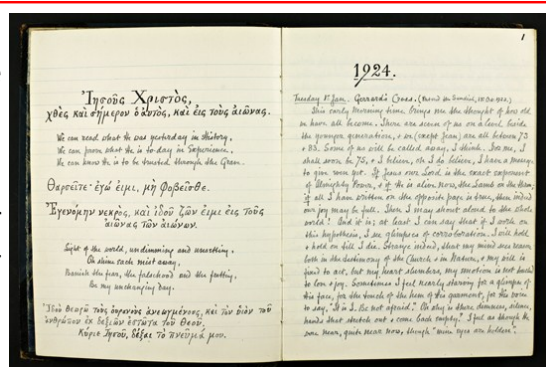 Ἰησοῦς Χριστὸς,
χθὲς καὶ σήμερον ὁ αὐτὸς, καὶ εἰς τοὺς αἰῶνας.
We can read what He was yesterday in History,
We can prove what He is to-day in Experience,
We can know He is to be trusted through the Grave.
Θαρσεῖτε· ἐγώ εἰμι, μὴ φοβεῖσθε.
Ἐγενόμην νεκρὸς, καὶ ἰδοὺ ζῶν εἰμι εἰς τοὺς
αἰῶνας τῶν αἰώνων.
Light of the world, undimming and unsetting,
Oh shine each mist away,
Banish the fear, the falsehood and the fretting,
Be my unchanging day.
Ἰδοὺ θεωρῶ τοὺς οὐρανοὺς ἀνεῳγμένους, καὶ τὸν υἱὸν τοῦ
ἀνθρώπου ἐκ δεξιῶν ἑστῶτα τοῦ Θεοῦ.
Κύριε Ἰησοῦ, δέξαι τὸ πνεῦμά μου.
1
1924.
Tuesday 1st Jan. Gerrard's Cross.
This early morning time brings me the thought of how old
we have all become. There are seven of us on a level, beside
the younger generation, & we (except Jean) are all between 73
& 83. Some of us will be called away, I think. For me, I
shall soon be 75, & I believe, oh I do believe, I have a message
to give even yet. If Jesus our Lord is the exact exponent
of Almighty Power, & if He is alive now, the Lamb on the throne;
if all I have written on the opposite page is true, then indeed
our joy may be full. Then I may shout aloud to the whole
world! And it is; at least I can say that if I work on
this hypothesis, I see glimpses of corroboration. I will hold
& hold on till I die. Strange indeed, that my mind sees reason
both in the testimony of the Church & in Nature, & my will is
fixed to act, but my heart slumbers, my emotion is not touched
to love & joy. Sometimes I feel nearly starving for a glimpse of
His face, for the touch of the hem of His garment, for His voice
to say, "It is I. Be not afraid." Oh why is there dimness, silence,
hands that stretch out & come back empty? I feel as though He
were near, quite near now, though "mine eyes are holden".